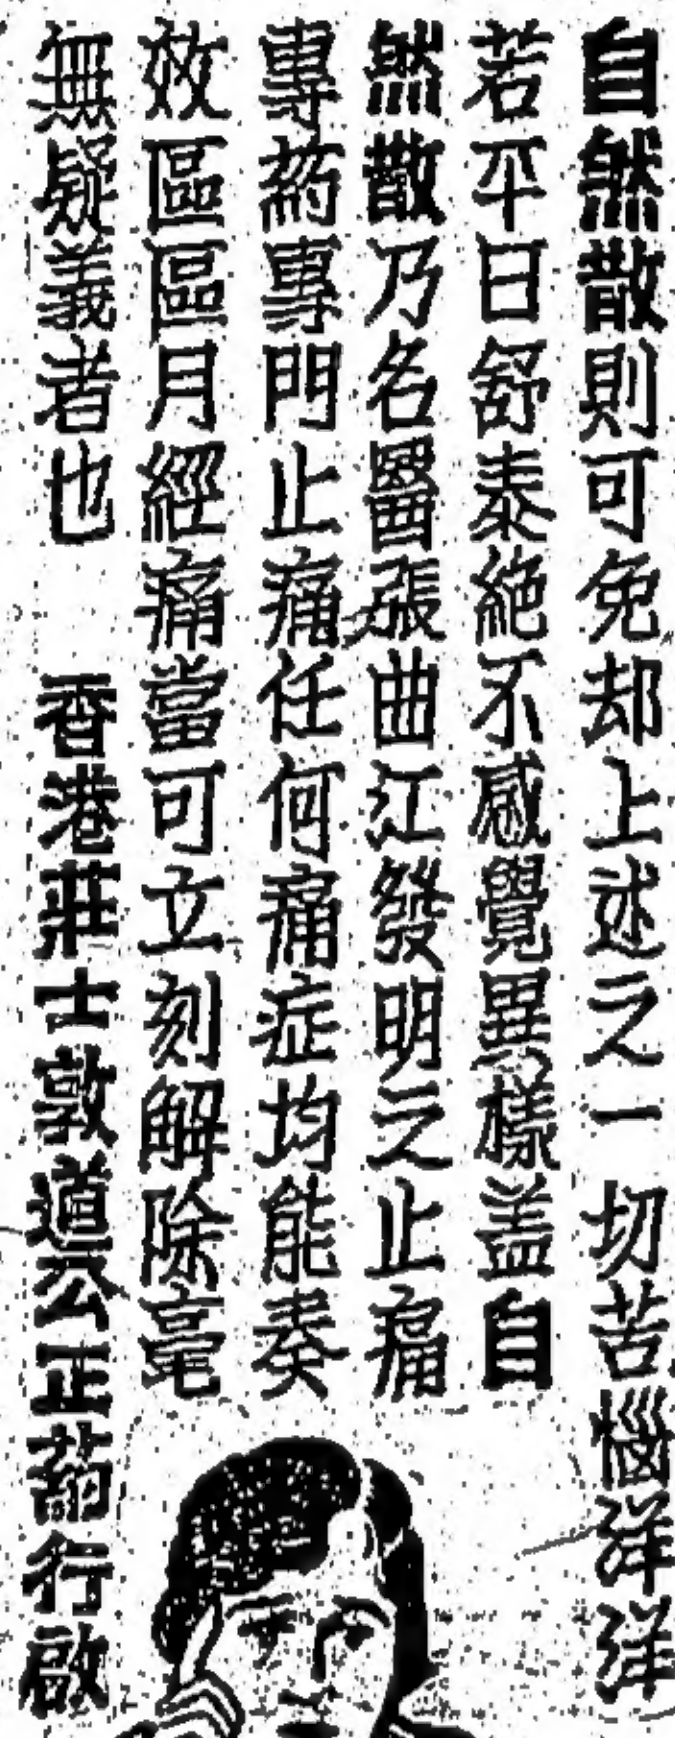 自然散則可免却上述之一切苦惱洋洋
若平日舒泰絕不感覺異樣盖自
然散乃名醫張曲江發明之止痛
專葯專門止痛任何痛症均能奏
效區區月經痛當可立刻解除毫
無疑義者也　香港莊士敦道公正葯行啟